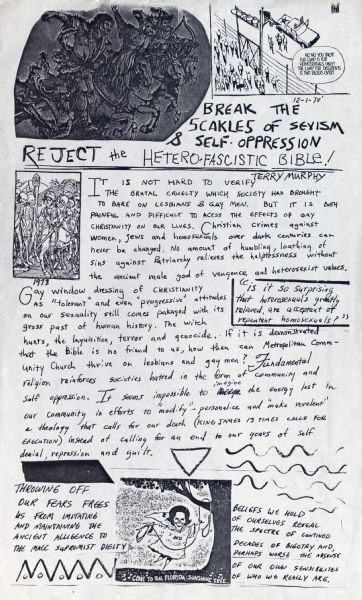 NO NO YOU IDIOT!
THIS CAMP IS FOR
HOMOSEXUALS ONLY!
THE CAMP FOR DISSIDENTS
IS TWO BLOCKS OVER!!
12-1-78
BREAK THE
SCAKLES OF SEVISM
& SELF-OPPRESSION
REJECT the HETERO-FASCISTIC BIBLE!
TERRY MURPHY
IT IS NOT HARD TO VERIFY
THE BRUTAL CRUELTY WHICH SOCIETY HAS BROUGHT
TO BARE ON LESBIANS & GAY MEN. BUT IT IS BOTH
PAINFUL AND DIFFICULT TO ACESS THE EFFECTS OF GAY
CHRISTIANITY ON OUR LIVES. Christian crimes against
Women, Jews and homosexuals over dark centuries can
never be changed. No amount of humbling, loathing of
Sins against Patriarchy relieves the helplessness without
the ancient male god of vengence and heterosexist values.
1973
Gay window dressing of CHRISTIANITY
As "tolerant" and even "progressive" attitudes
on our sexuality still comes pakaged with its
gross past of human history. The witch
hunts, the Inquisition, terror and genocide. If it is demonstrated
"Is it so surprising
that heterosexuals greatly
relieved, are acceptent of
repentent homosexuals?"
that the Bible is no friend to us, how then can Metropolitan Comm-
unity Church thrive on lesbians and gay men? Fundamental
religion reinforces societies hatred in the form of community and
self oppression. It seems impossible to imagine the energy lost in
our community in efforts to "modify"- personalize and "make revelent"
a theology that calls for our death (KING JAMES 13 TIMES CALLS FOR
EXECUTION) instead of calling for an end to our years of self
denial, repression and guilt.
THROWING OFF
OUR FEARS FREES
US FROM IMITATING
AND MAINTAINING THE
ANCIENT ALLIGENCE TO
THE MALE SUPREMIST DIEITY
COME TO THE FLORIDA SUNSHINE TREE
BELIEFS WE HOLD
OF OURSELVES REVEAL
THE SPECTRE OF CONTINUED
DECADES OF BIGOTRY AND,
PERHAPS WORSE THE ABSENSE
OF OUR OWN SENSIBILITIES
OF WHO WE REALLY ARE.